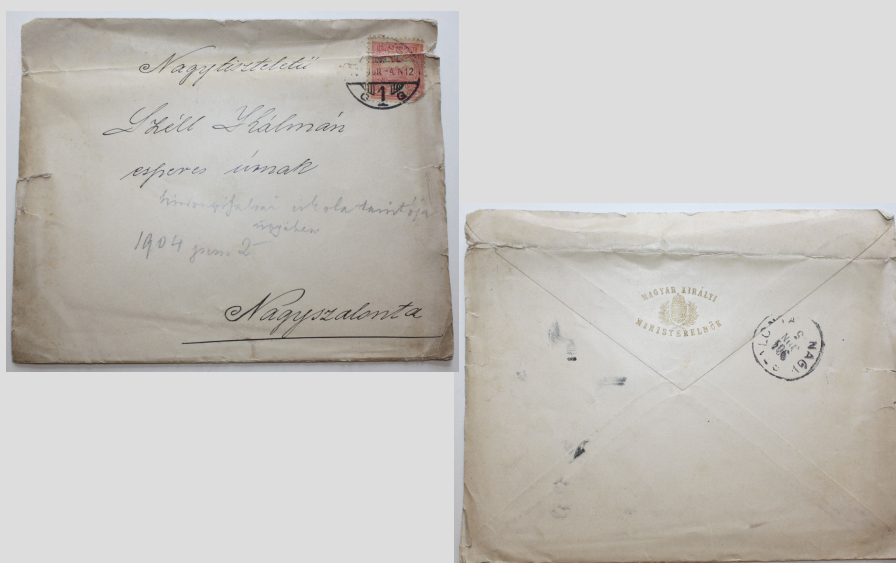 Nagytiszteletű
Széll Kálmán
esperes úrnak
iskola tanítója
ügyében
1904 jun. 2
Nagyszalonta
1
G G
MAGYAR KIRÁLYI
MINISTERELNÖK